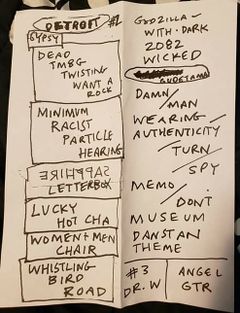 DETROIT #2
GYPSY
DEAD
TMBG
TWISTING
WANT A
ROCK
MINIMUM
RACIST
PARTICLE
HEARING
SAPPHIRE
LETTERBOX
LUCKY
HOT CHA
WOMEN+MEN
CHAIR
WHISTLING
BIRD
ROAD
GODZILLA-
WITH-DARK
2082
WICKED
GUDETAMA
DAMN/
MAN
WEARING/
AUTHENTICITY/
TURN/
SPY
MEMO/
DON'T
MUSEUM
DANSTAN
THEME
#3
DR. W
ANGEL
GTR